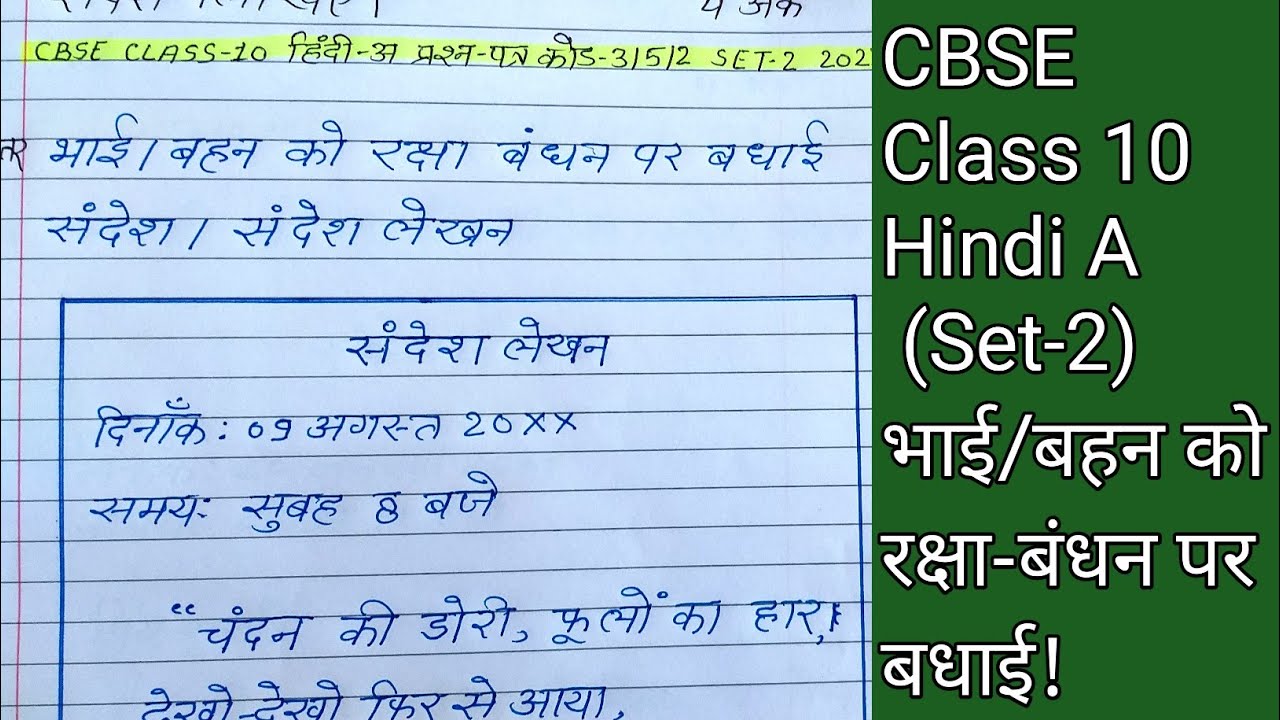 4 अंक
CBSE CLASS-10 हिंदी-अ प्रश्न-पत्र कोड-3/5/2 SET-2 202
भाई/बहन को रक्षा बंधन पर बधाई
संदेश/ संदेश लेखन
संदेश लेखन
दिनाँक: 09 अगस्त 20××
समय: सुबह 8 बजे
“चंदन की डोरी, फूलों का हार,
देखो-देखो फिर से आया,
CBSE
Class 10
Hindi A
(Set-2)
भाई/बहन को
रक्षा-बंधन पर
बधाई!